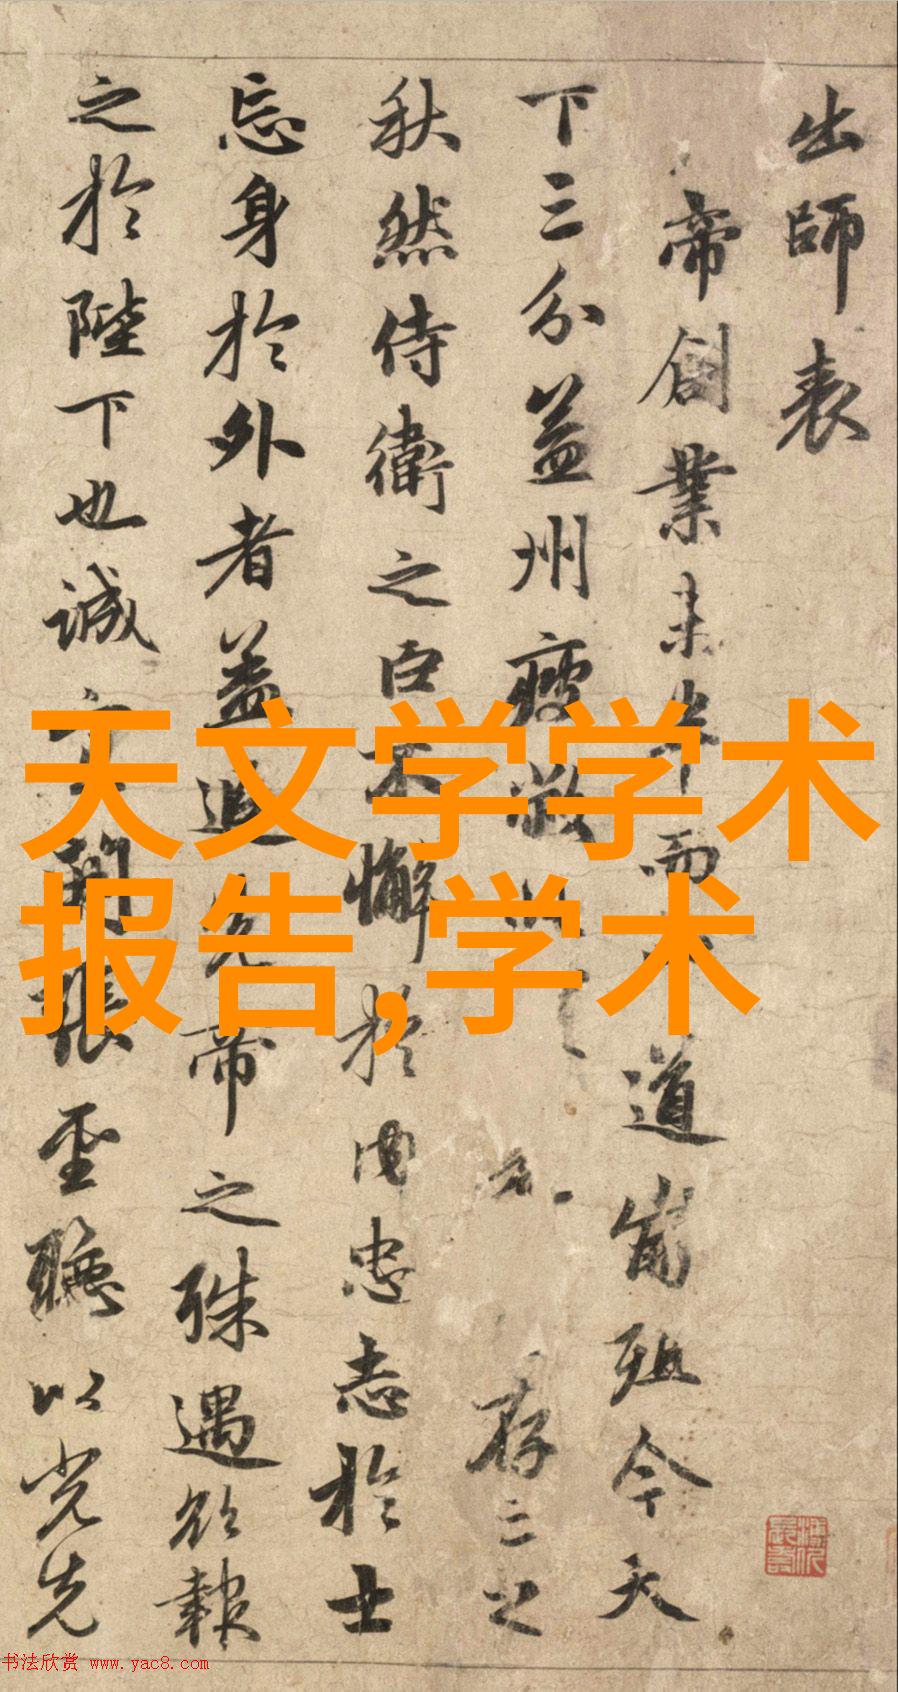 出師表
帝創業未半而道崩殂今天
下三分益州疲敝存之
秋然侍衛之臣不懈於内忠志於士
忘身於外者益追先帝之殊遇欲報
之於陛下也誠宜開張聖聽以光先
天文学学术
报告,学术
书法欣赏 www.yac8.com